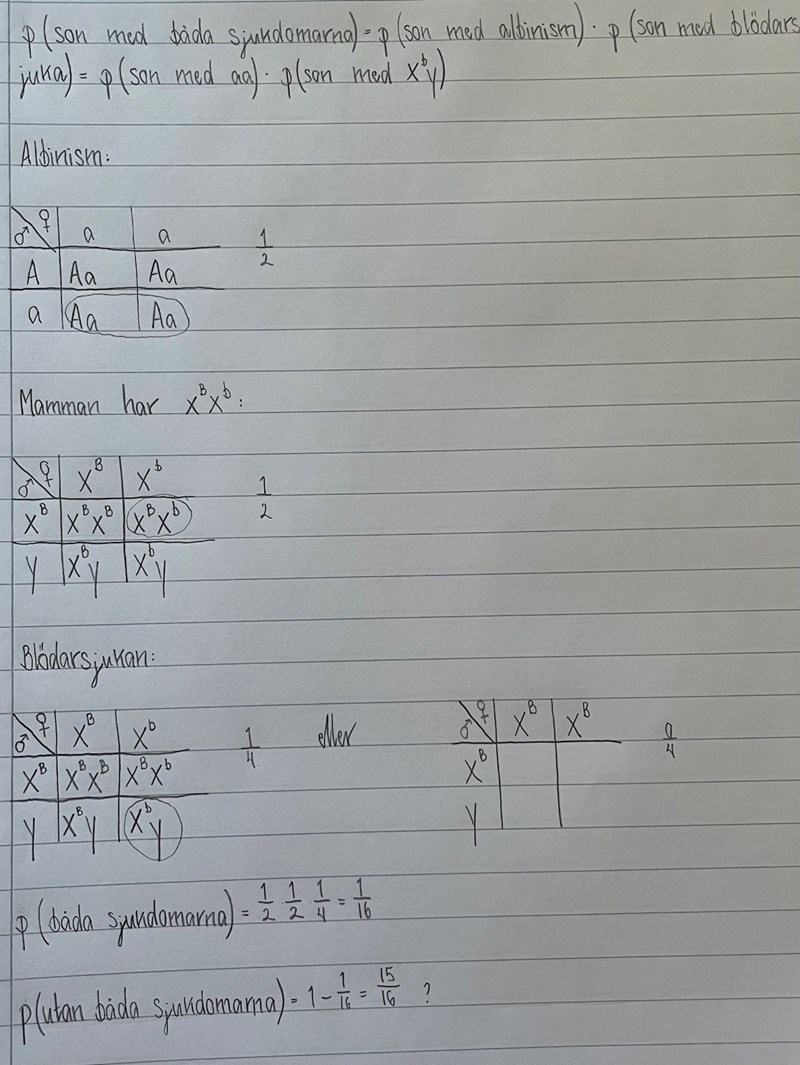 p (son med båda sjukdomarna) = p (son med albinism) · p (son med blödars
juka) = p (son med aa) · p (son med XᵇY)
Albinism:
♂ ♀ a a 1/2
A Aa Aa
a Aa Aa
Mamman har XᴮXᵇ:
♂ ♀ Xᴮ Xᵇ 1/2
Xᴮ XᴮXᴮ XᴮXᵇ
Y XᴮY XᵇY
Blödarsjukan:
♂ ♀ Xᴮ Xᵇ 1/4 eller ♂ ♀ Xᴮ Xᴮ 0/4
Xᴮ XᴮXᴮ XᴮXᵇ Xᴮ
Y XᴮY XᵇY Y
p (båda sjukdomarna) = 1/2 · 1/2 · 1/4 = 1/16
p (utan båda sjukdomarna) = 1 - 1/16 = 15/16 ?